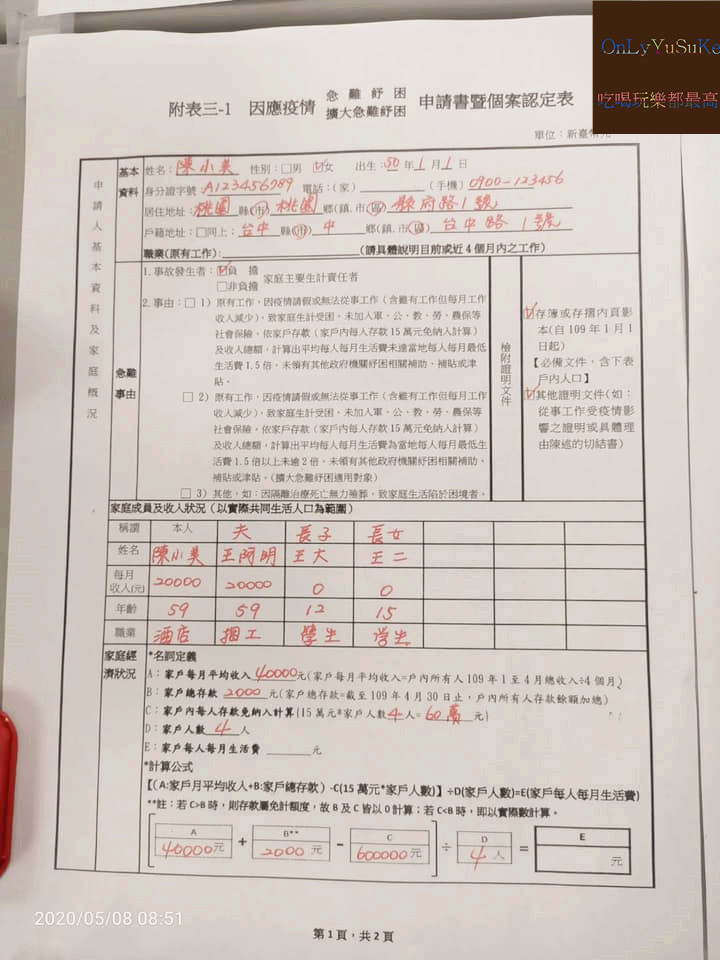 OnLyYuSuKe
吃喝玩樂都最高
附表三-1 因應疫情 急難紓困 擴大急難紓困 申請書暨個案認定表
單位：新臺幣元
申請人基本資料及家庭概況
基本資料
姓名：陳小美 性別：□男 ☑女 出生：50年1月1日
身分證字號：A123456789 電話：(家)＿＿＿ (手機)0900-123456
居住地址：桃園縣(市)桃園鄉(鎮.市.區)縣府路1號
戶籍地址：□同上；台中縣(市)中鄉(鎮.市.區)台中路1號
職業(原有工作)：＿＿＿(請具體說明目前或近4個月內之工作)
急難事由
1.事故發生者：☑負擔 □非負擔 家庭主要生計責任者
2.事由：□ 1) 原有工作，因疫情請假或無法從事工作（含雖有工作但每月工作
收入減少)，致家庭生計受困，未加入軍、公、教、勞、農保等
社會保險，依家戶存款（家戶內每人存款15萬元免納入計算）
及收入總額，計算出平均每人每月生活費未達當地每人每月最低
生活費1.5倍，未領有其他政府機關紓困相關補助、補貼或津
貼。
□ 2) 原有工作，因疫情請假或無法從事工作（含雖有工作但每月工作
收入減少)，致家庭生計受困，未加入軍、公、教、勞、農保等
社會保險，依家戶存款（家戶內每人存款15萬元免納入計算）
及收入總額，計算出平均每人每月生活費為當地每人每月最低生
活費1.5倍以上未逾2倍，未領有其他政府機關紓困相關補助、
補貼或津貼。(擴大急難紓困適用對象)
□ 3) 其他，如：因隔離治療死亡無力殮葬，致家庭生活陷於困境者。
檢附證明文件
☑存簿或存摺內頁影
本(自109年1月1
日起)
【必備文件，含下表
戶內人口】
☑其他證明文件(如：
從事工作受疫情影
響之證明或具體理
由陳述的切結書)
家庭成員及收入狀況（以實際共同生活人口為範圍）
稱謂 本人 夫 長子 長女
姓名 陳小美 王阿明 王大 王二
每月收入(元) 20000 20000 0 0
年齡 59 59 12 15
職業 酒店 捆工 學生 学生
家庭經濟狀況
*名詞定義
A：家戶每月平均收入 40000元(家戶每月平均收入=戶內所有人109年1至4月總收入÷4個月)
B：家戶總存款 2000元(家戶總存款=截至109年4月30日止，戶內所有人存款餘額加總)
C：家戶內每人存款免納入計算(15萬元*家戶人數4人=60萬元)
D：家戶人數4人
E：家戶每人每月生活費＿＿＿元
*計算公式
【（A:家戶月平均收入+B:家戶總存款）-C(15萬元*家戶人數)】÷D(家戶人數)=E(家戶每人每月生活費)
**註：若C>B時，則存款屬免計額度，故B及C皆以0計算；若C<B時，即以實際數計算。
A B** C D E
40000元 + 2000元 - 600000元 ÷ 4人 = 元
2020/05/08 08:51
第1頁，共2頁